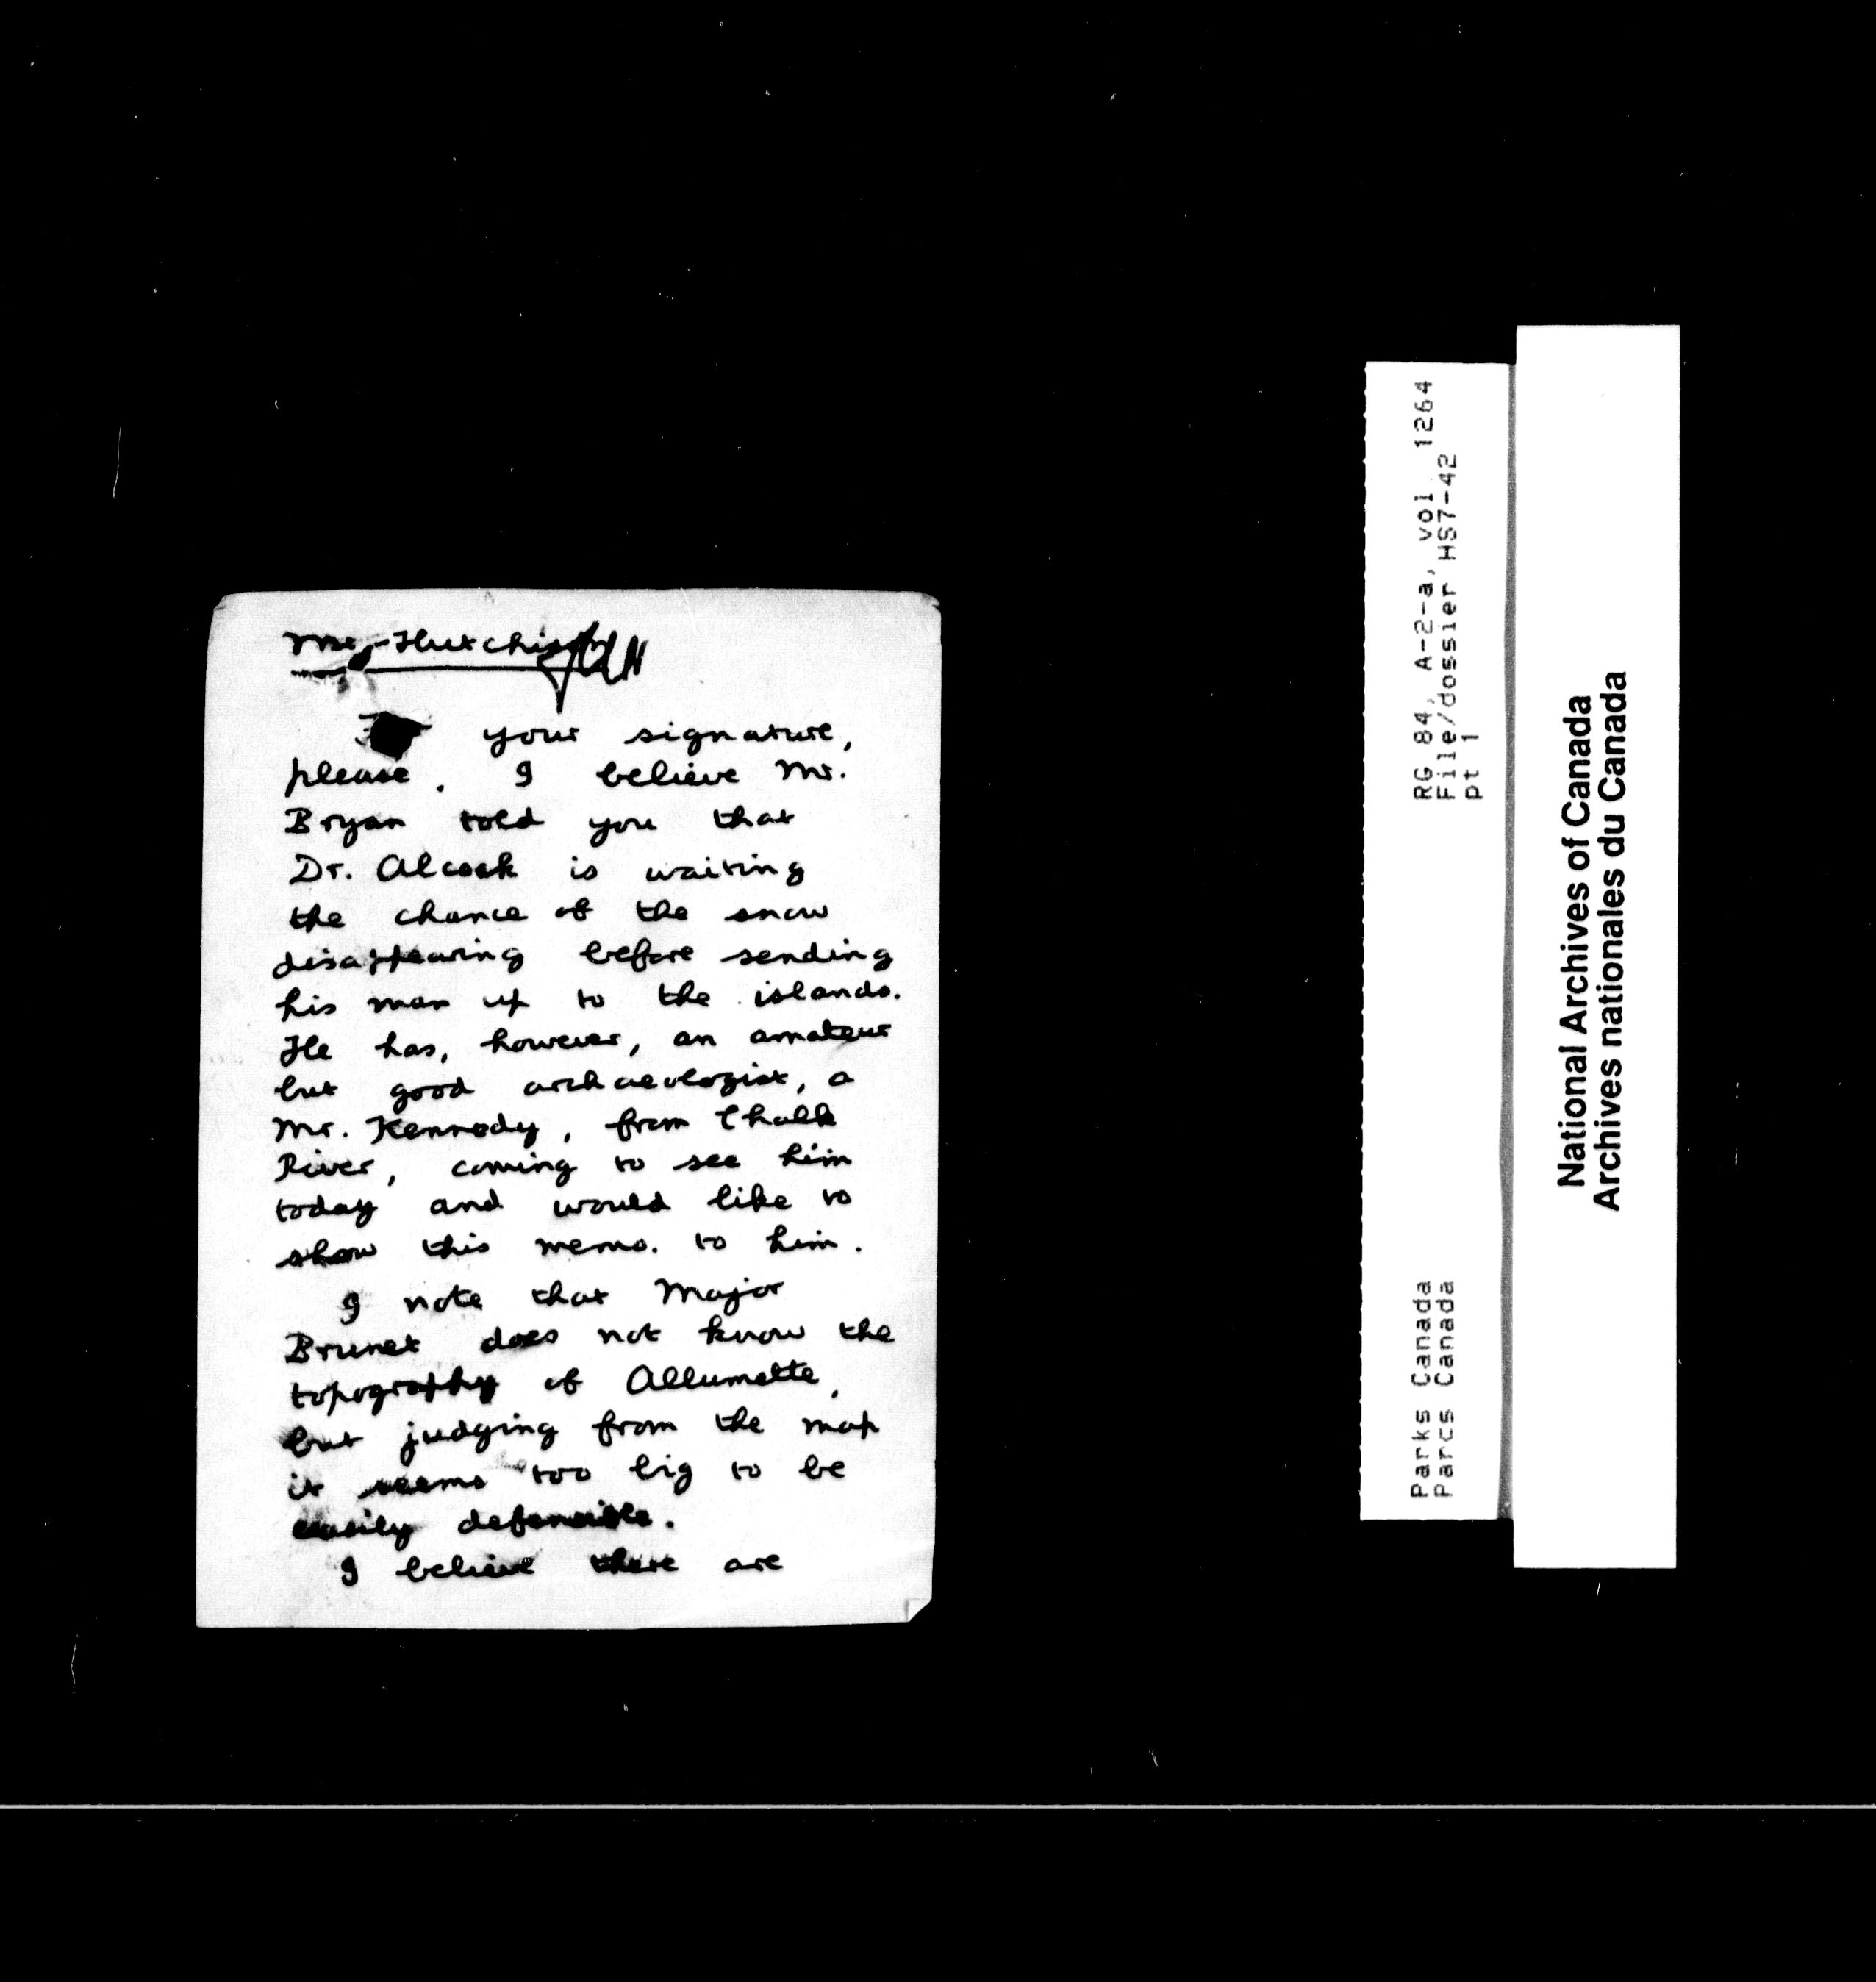 Mr. Hutchison
your signature,
please. I believe Mr.
Bryan told you that
Dr. Alcock is waiting
the chance of the snow
disappearing before sending
his man up to the islands.
He has, however, an amateur
but good archaeologist, a
Mr. Kennedy, from Chalk
River, coming to see him
today and would like to
show this memo. to him.
I note that Major
Brunet does not know the
topography of Allumette,
but judging from the map
it seems too big to be
easily defensible.
I believe there are
RG 84, A-2-a, vol. 1264
File/dossier HS7-42
pt 1
Parks Canada
Parcs Canada
National Archives of Canada
Archives nationales du Canada